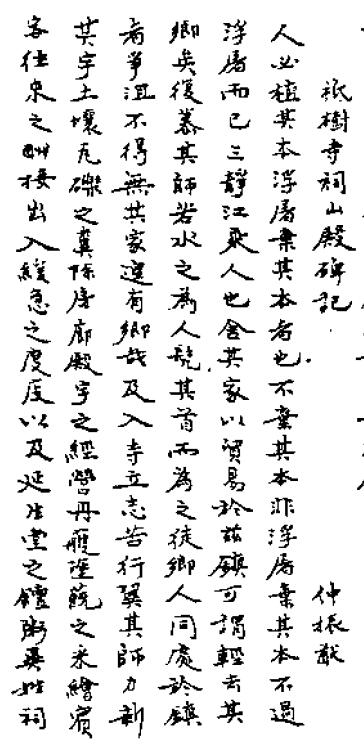 祇樹寺祠山殿碑記 仲振猷
人必植其本浮屠棄其本者也不棄其本非浮屠棄其本不過
浮屠而已三靜江乘人也舍其家以貿易於茲鎮可謂輕去其
鄉矣後慕其師若水之為人髡其首而為之徒鄉人同處於鎮
者爭沮不得無其家遑有鄉哉及入寺立志苦行翼其師力新
其宇土壤瓦礫之糞除房廊殿宇之經營丹雘塗飾之采繪賓
客仕泉之酬接出入緩急之度度以及延生堂之饘粥異姓祠